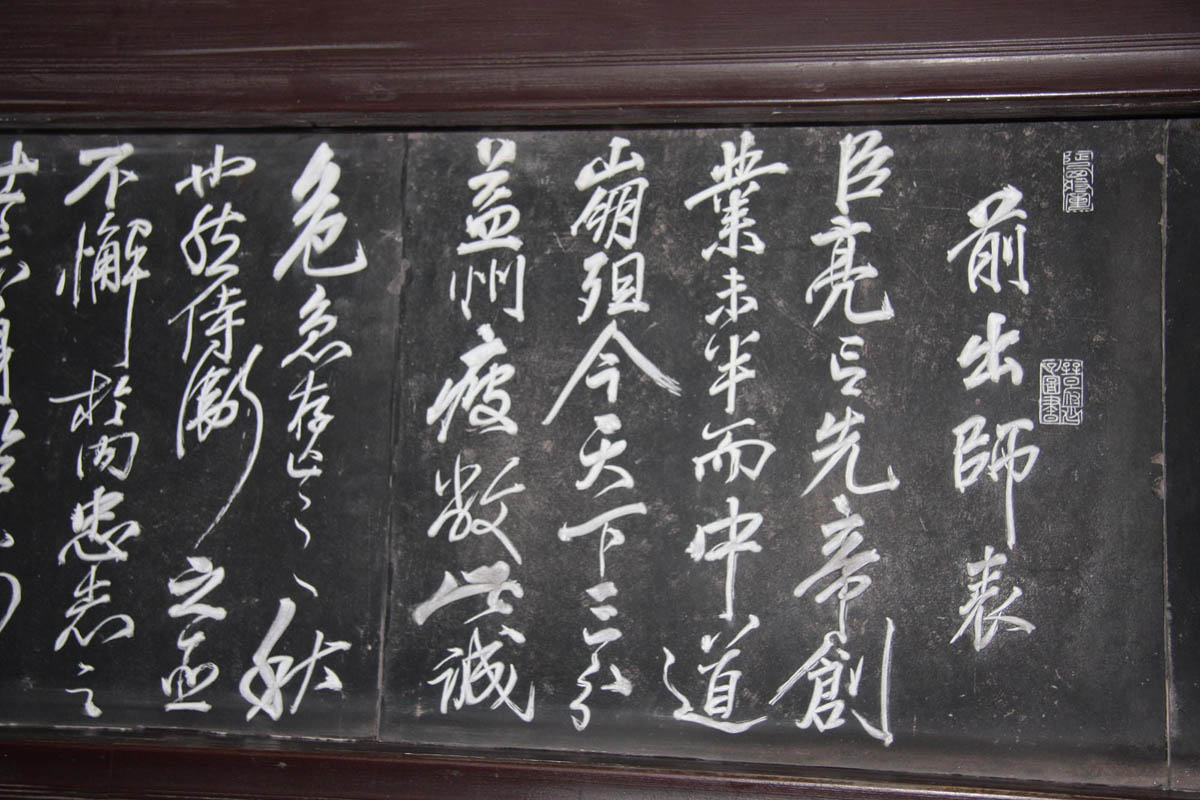 前出師表
臣亮言先帝創
業未半而中道
崩殂今天下三分
益州疲敝此誠
危急存亡之秋
也然侍衛之臣
不懈於內忠志之